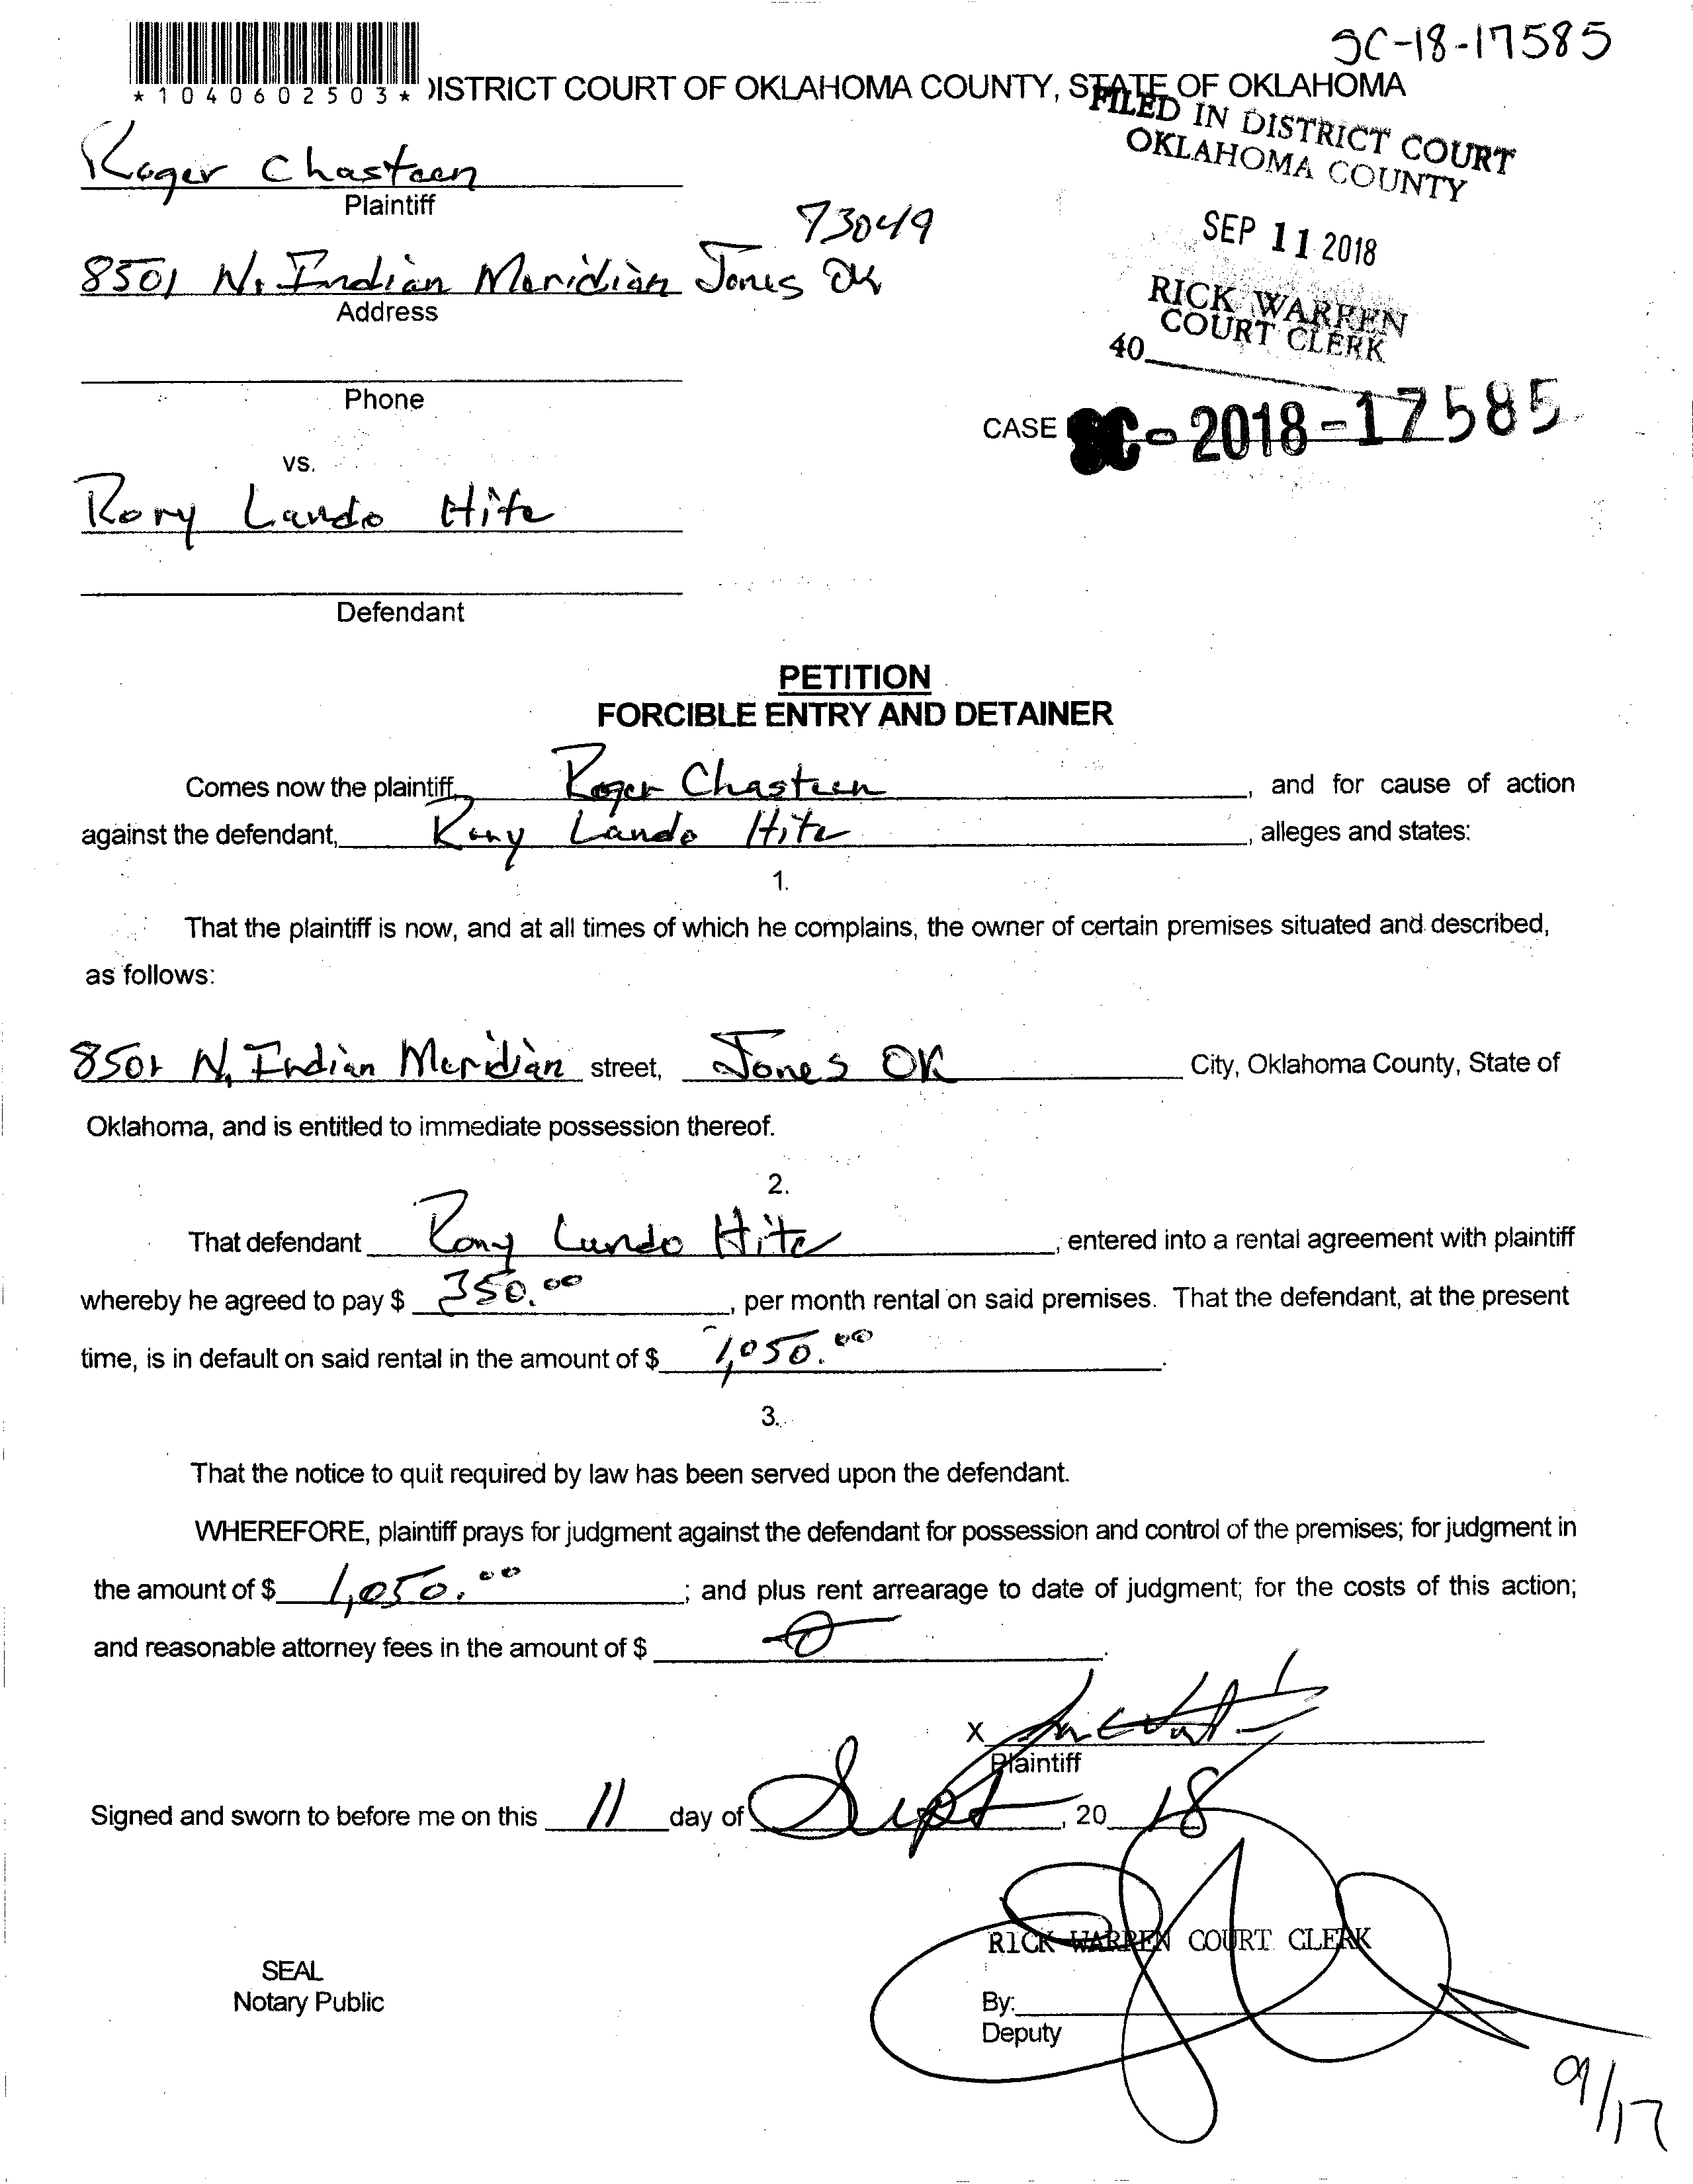 SC-18-17585
*1040602503* DISTRICT COURT OF OKLAHOMA COUNTY, STATE OF OKLAHOMA
FILED IN DISTRICT COURT
OKLAHOMA COUNTY
Roger Chasteen
Plaintiff
SEP 11 2018
73049
8501 N. Indian Meridian Jones OK
Address
RICK WARREN
COURT CLERK
40
Phone
CASE SC-2018-17585
vs.
Rory Lando Hite
Defendant
PETITION
FORCIBLE ENTRY AND DETAINER
Comes now the plaintiff, Roger Chasteen, and for cause of action
against the defendant, Rory Lando Hite, alleges and states:
1.
That the plaintiff is now, and at all times of which he complains, the owner of certain premises situated and described,
as follows:
8501 N. Indian Meridian street, Jones OK City, Oklahoma County, State of
Oklahoma, and is entitled to immediate possession thereof.
2.
That defendant Rory Lando Hite, entered into a rental agreement with plaintiff
whereby he agreed to pay $ 350.00, per month rental on said premises. That the defendant, at the present
time, is in default on said rental in the amount of $ 1,050.00.
3.
That the notice to quit required by law has been served upon the defendant.
WHEREFORE, plaintiff prays for judgment against the defendant for possession and control of the premises; for judgment in
the amount of $ 1,050.00; and plus rent arrearage to date of judgment; for the costs of this action;
and reasonable attorney fees in the amount of $ 0.
X
Plaintiff
Signed and sworn to before me on this 11 day of Sept, 20 18
RICK WARREN COURT CLERK
SEAL
Notary Public
By:
Deputy
9/17